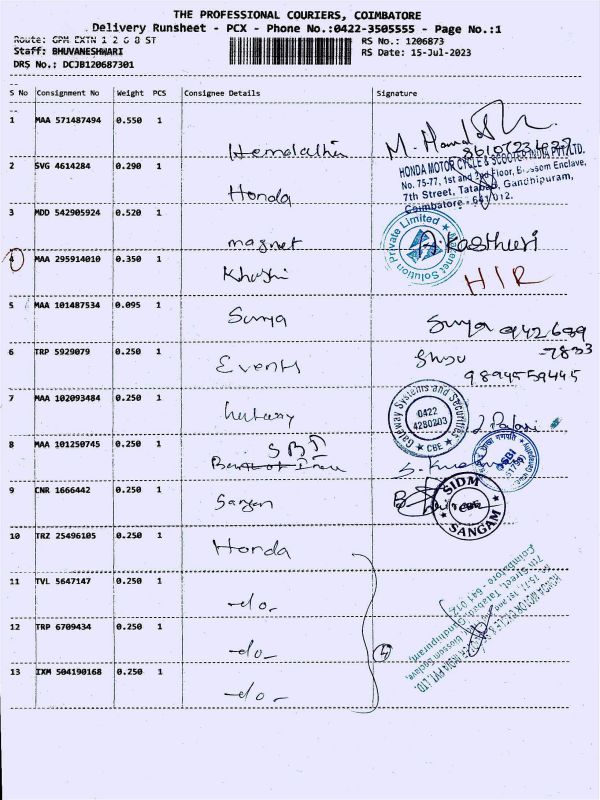 THE PROFESSIONAL COURIERS, COIMBATORE
Delivery Runsheet - PCX - Phone No.:0422-3505555 - Page No.:1
Route: GPM EXTN 1 2 6 8 ST RS No.: 1206873
Staff: BHUVANESHWARI RS Date: 15-Jul-2023
DRS No.: DCJB120687301
S No Consignment No Weight PCS Consignee Details Signature
1 MAA 571487494 0.550 1
HONDA MOTOR CYCLE & SCOOTER INDIA PVT.LTD.
No. 75-77, 1st and 2nd Floor, Blossom Enclave,
7th Street, Tatabad, Gandhipuram,
Coimbatore - 641 012.
2 SVG 4614284 0.290 1 Honda
3 MDD 542905924 0.520 1 magnet A. Kasthuri
Magnet Solution Private Limited
4 MAA 295914010 0.350 1 Khushi H/R
5 MAA 101487534 0.095 1 Surya Surya
6 TRP 5929079 0.250 1 Events
9894559445
7 MAA 102093484 0.250 1
Gateway Systems and Securities
0422
4280203
CBE
8 MAA 101250745 0.250 1 SBI
9 CNR 1666442 0.250 1 Sangam
SIDM
SANGAM
10 TRZ 25496105 0.250 1 Honda
11 TVL 5647147 0.250 1 -do-
12 TRP 6709434 0.250 1 -do- 4
13 IXM 504190168 0.250 1 -do-